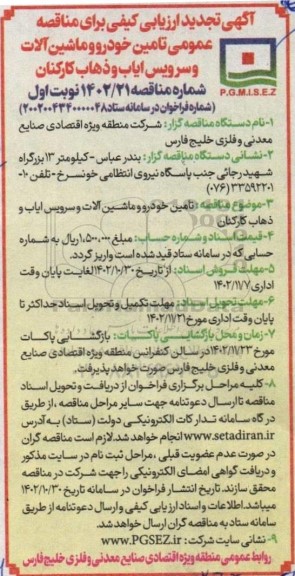 آگهی تجدید ارزیابی کیفی برای مناقصه
عمومی تامین خودرو و ماشین آلات
و سرویس ایاب و ذهاب کارکنان
P.G.M.I.S.E.Z
شماره مناقصه ۱۴۰۲/۲۱ نوبت اول
(شماره فراخوان در سامانه ستاد ۲۰۰۲۰۰۴۳۴۰۰۰۰۰۴۸)
۱-نام دستگاه مناقصه گزار: شرکت منطقه ویژه اقتصادی صنایع
معدنی و فلزی خلیج فارس
۲-نشانی دستگاه مناقصه گزار: بندر عباس - کیلومتر ۱۳ بزرگراه
شهید رجائی جنب پاسگاه نیروی انتظامی خونسرخ - تلفن ۱۰-
۳۳۵۹۲۲۰۱ (۰۷۶)
۳-موضوع مناقصه: تامین خودرو و ماشین آلات و سرویس ایاب و
ذهاب کارکنان
۴-قیمت اسناد و شماره حساب: مبلغ ۱,۵۰۰,۰۰۰ ریال به شماره
حسابی که در سامانه ستاد قید شده است واریز گردد.
۵-مهلت فروش اسناد: از تاریخ ۱۴۰۲/۱۰/۳۰ لغایت پایان وقت
اداری ۱۴۰۲/۱۱/۷
۶-مهلت تحویل اسناد: مهلت تکمیل و تحویل اسناد حداکثر تا
پایان وقت اداری مورخ ۱۴۰۲/۱۱/۲۱
۷-زمان و محل بازگشایی پاکات: بازگشایی پاکات
مورخ ۱۴۰۲/۱۱/۲۳ در سالن کنفرانس منطقه ویژه اقتصادی صنایع
معدنی و فلزی خلیج فارس صورت خواهد پذیرفت.
۸-کلیه مراحل برگزاری فراخوان از دریافت و تحویل اسناد
مناقصه تا ارسال دعوتنامه جهت سایر مراحل مناقصه، از طریق
درگاه سامانه تدارکات الکترونیکی دولت (ستاد) به آدرس
www.setadiran.ir انجام خواهد شد. لازم است مناقصه گران
در صورت عدم عضویت قبلی، مراحل ثبت نام در سایت مذکور
و دریافت گواهی امضای الکترونیکی را جهت شرکت در مناقصه
محقق سازند. تاریخ انتشار فراخوان در سامانه تاریخ ۱۴۰۲/۱۰/۳۰
میباشد. اطلاعات و اسناد ارزیابی کیفی و ارسال دعوتنامه از طریق
سامانه ستاد به مناقصه گران ارسال خواهد شد.
۹-نشانی سایت شرکت: www.PGSEZ.ir
روابط عمومی منطقه ویژه اقتصادی صنایع معدنی و فلزی خلیج فارس